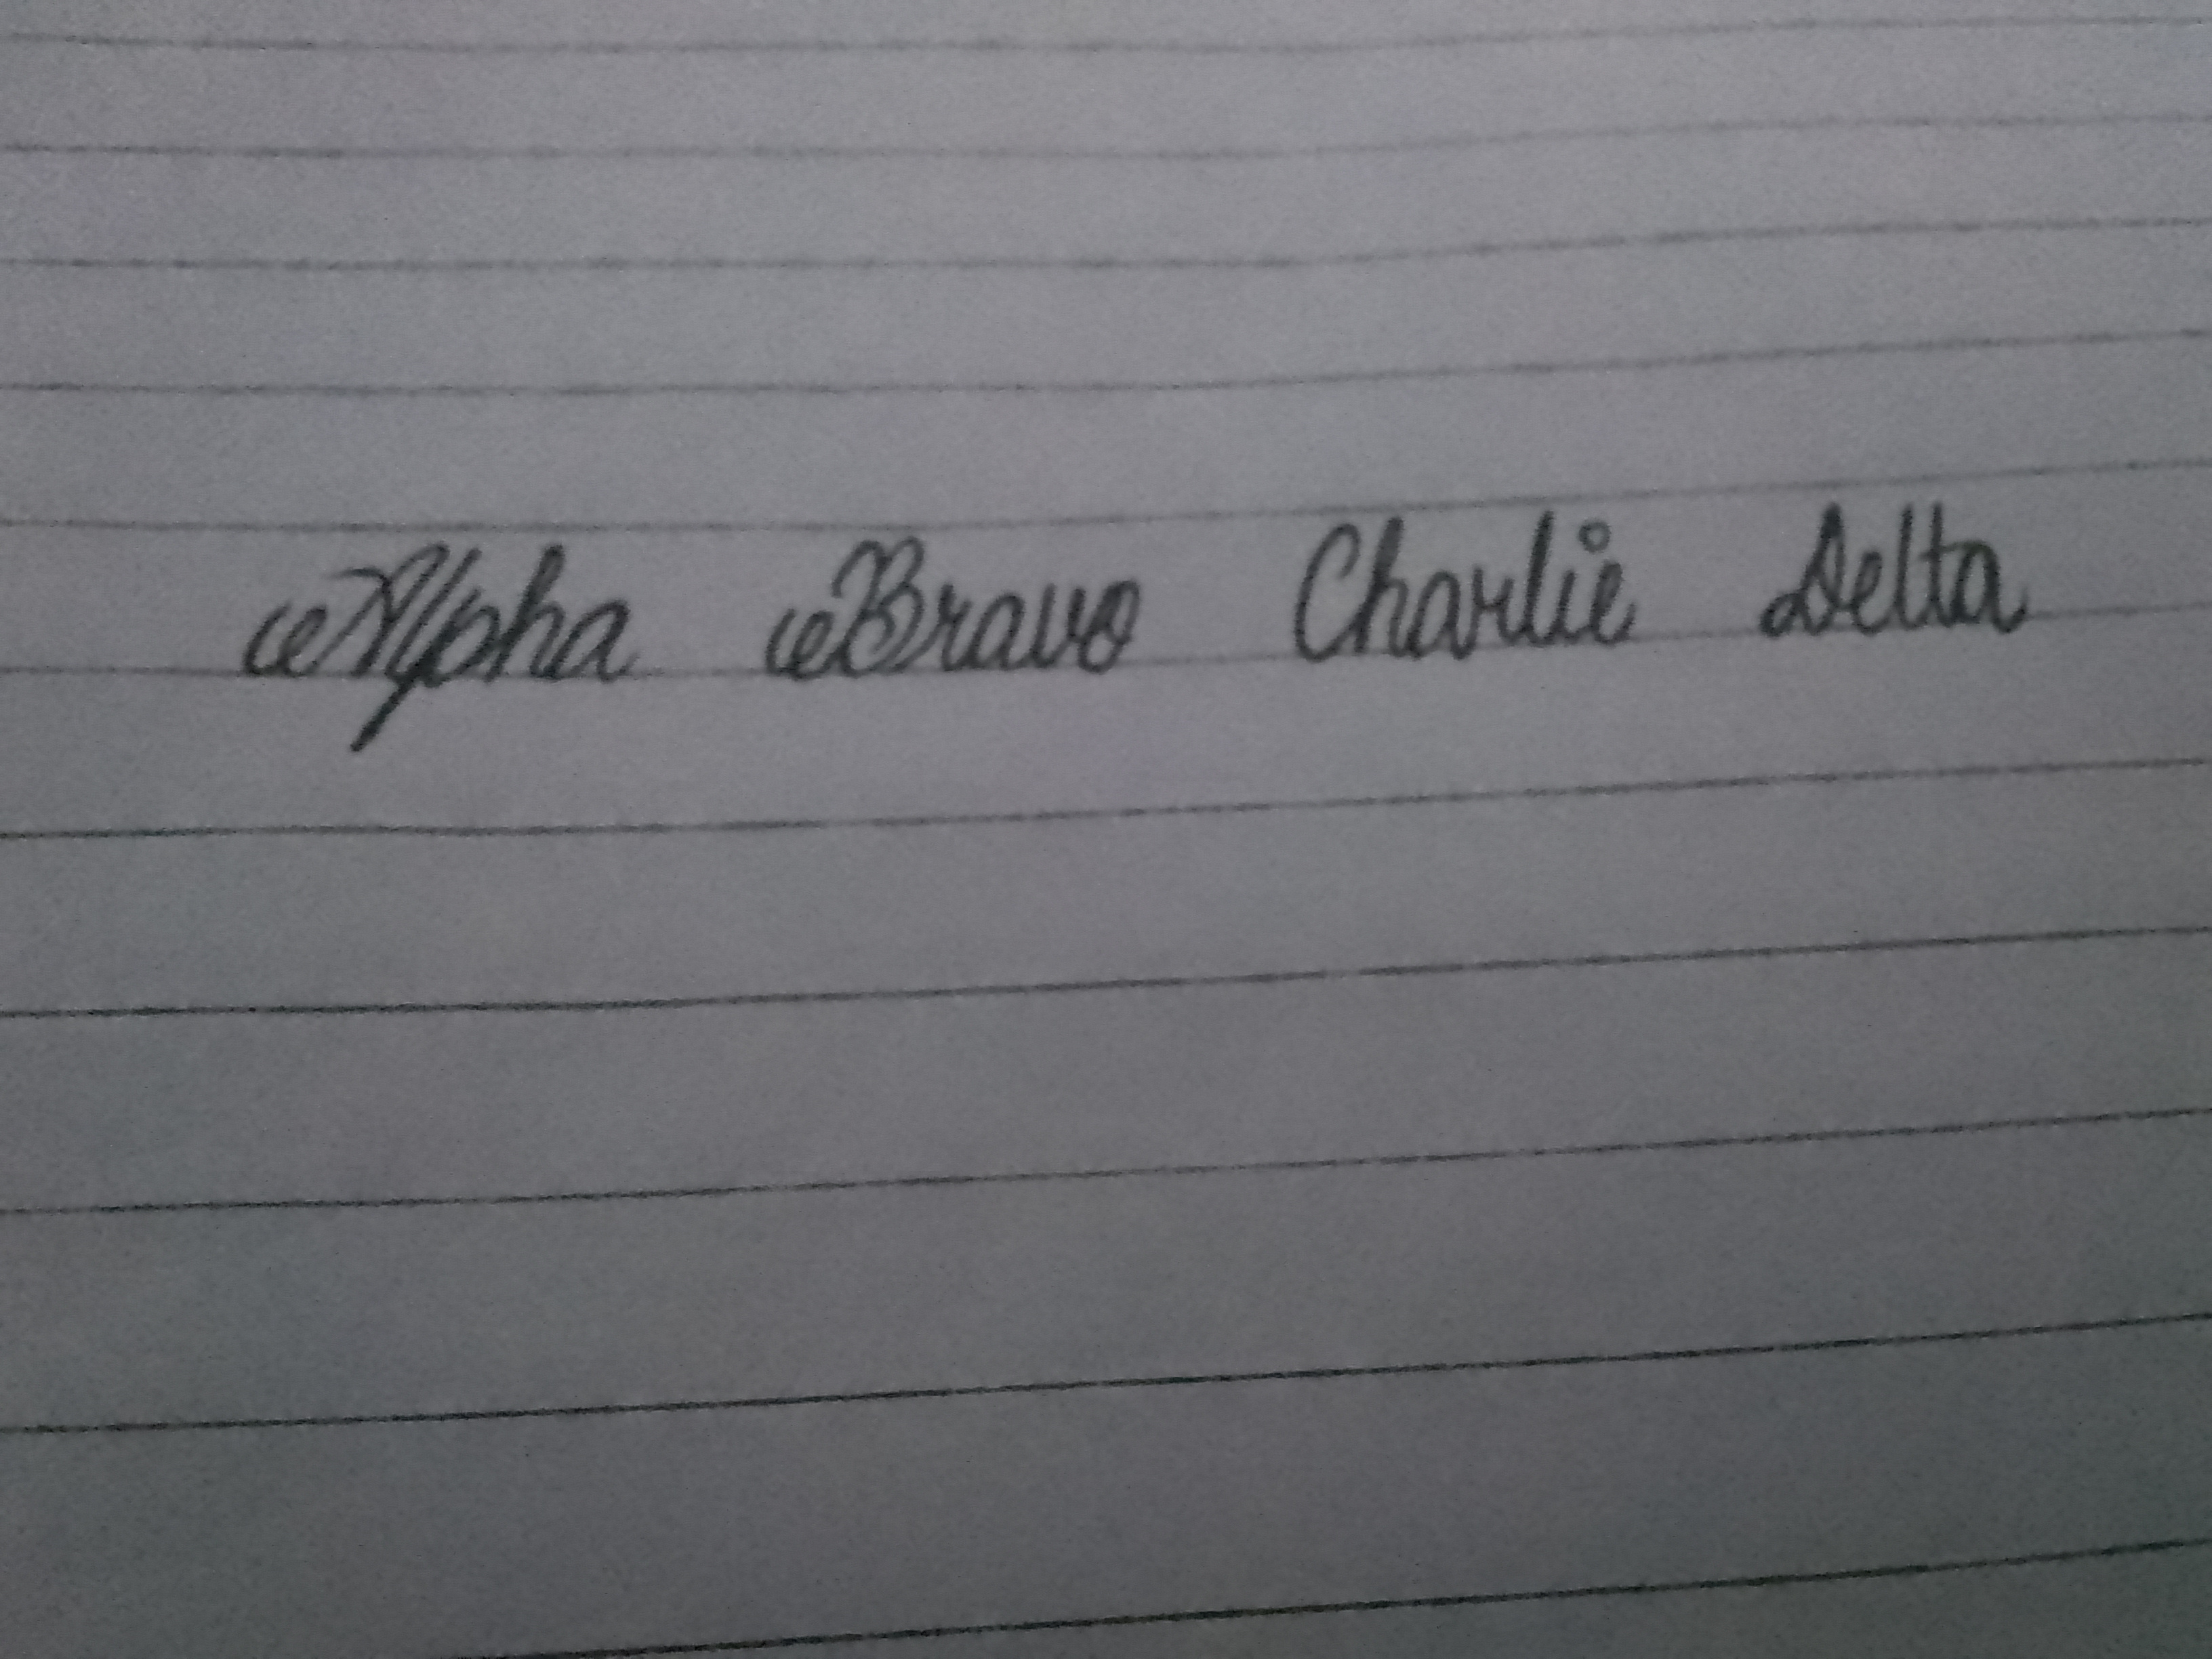 Alpha Bravo Charlie Delta